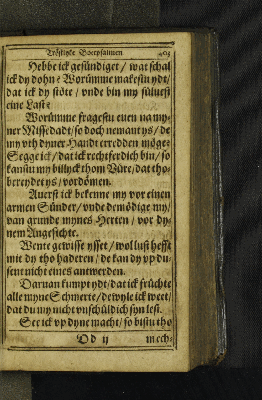 Tröstlyke Boetpsalmen
Hebbe ick gesündiget / wat schal
ick dy dohn? Worümme makestu ydt /
dat ick dy stöte / vnde bin my sülvest
eine Last?
Worümme fragestu euen na my-
ner Missedadt / so doch nemant ys / de
my vth dyner Handt erredden möge?
Segge ick / dat ick rechtferdich bin / so
kanstu my billyck thom Vüre / dat tho-
bereydet ys / vordömen.
Auerst ick bekenne my vor einen
armen Sünder / vnde demödige my /
van grunde mynes Herten / vor dy-
nem Angesichte.
Wente gewisse ysset / wol lust hefft
mit dy tho haderen / de kan dy vp du-
sent nicht eines antwerden.
Daruan kumpt ydt / dat ick früchte
alle myne Schmerte / dewyle ick weet /
dat du my nicht vnschüldich syn lest.
See ick vp dyne macht / so bistu tho
Dd ij
mech-